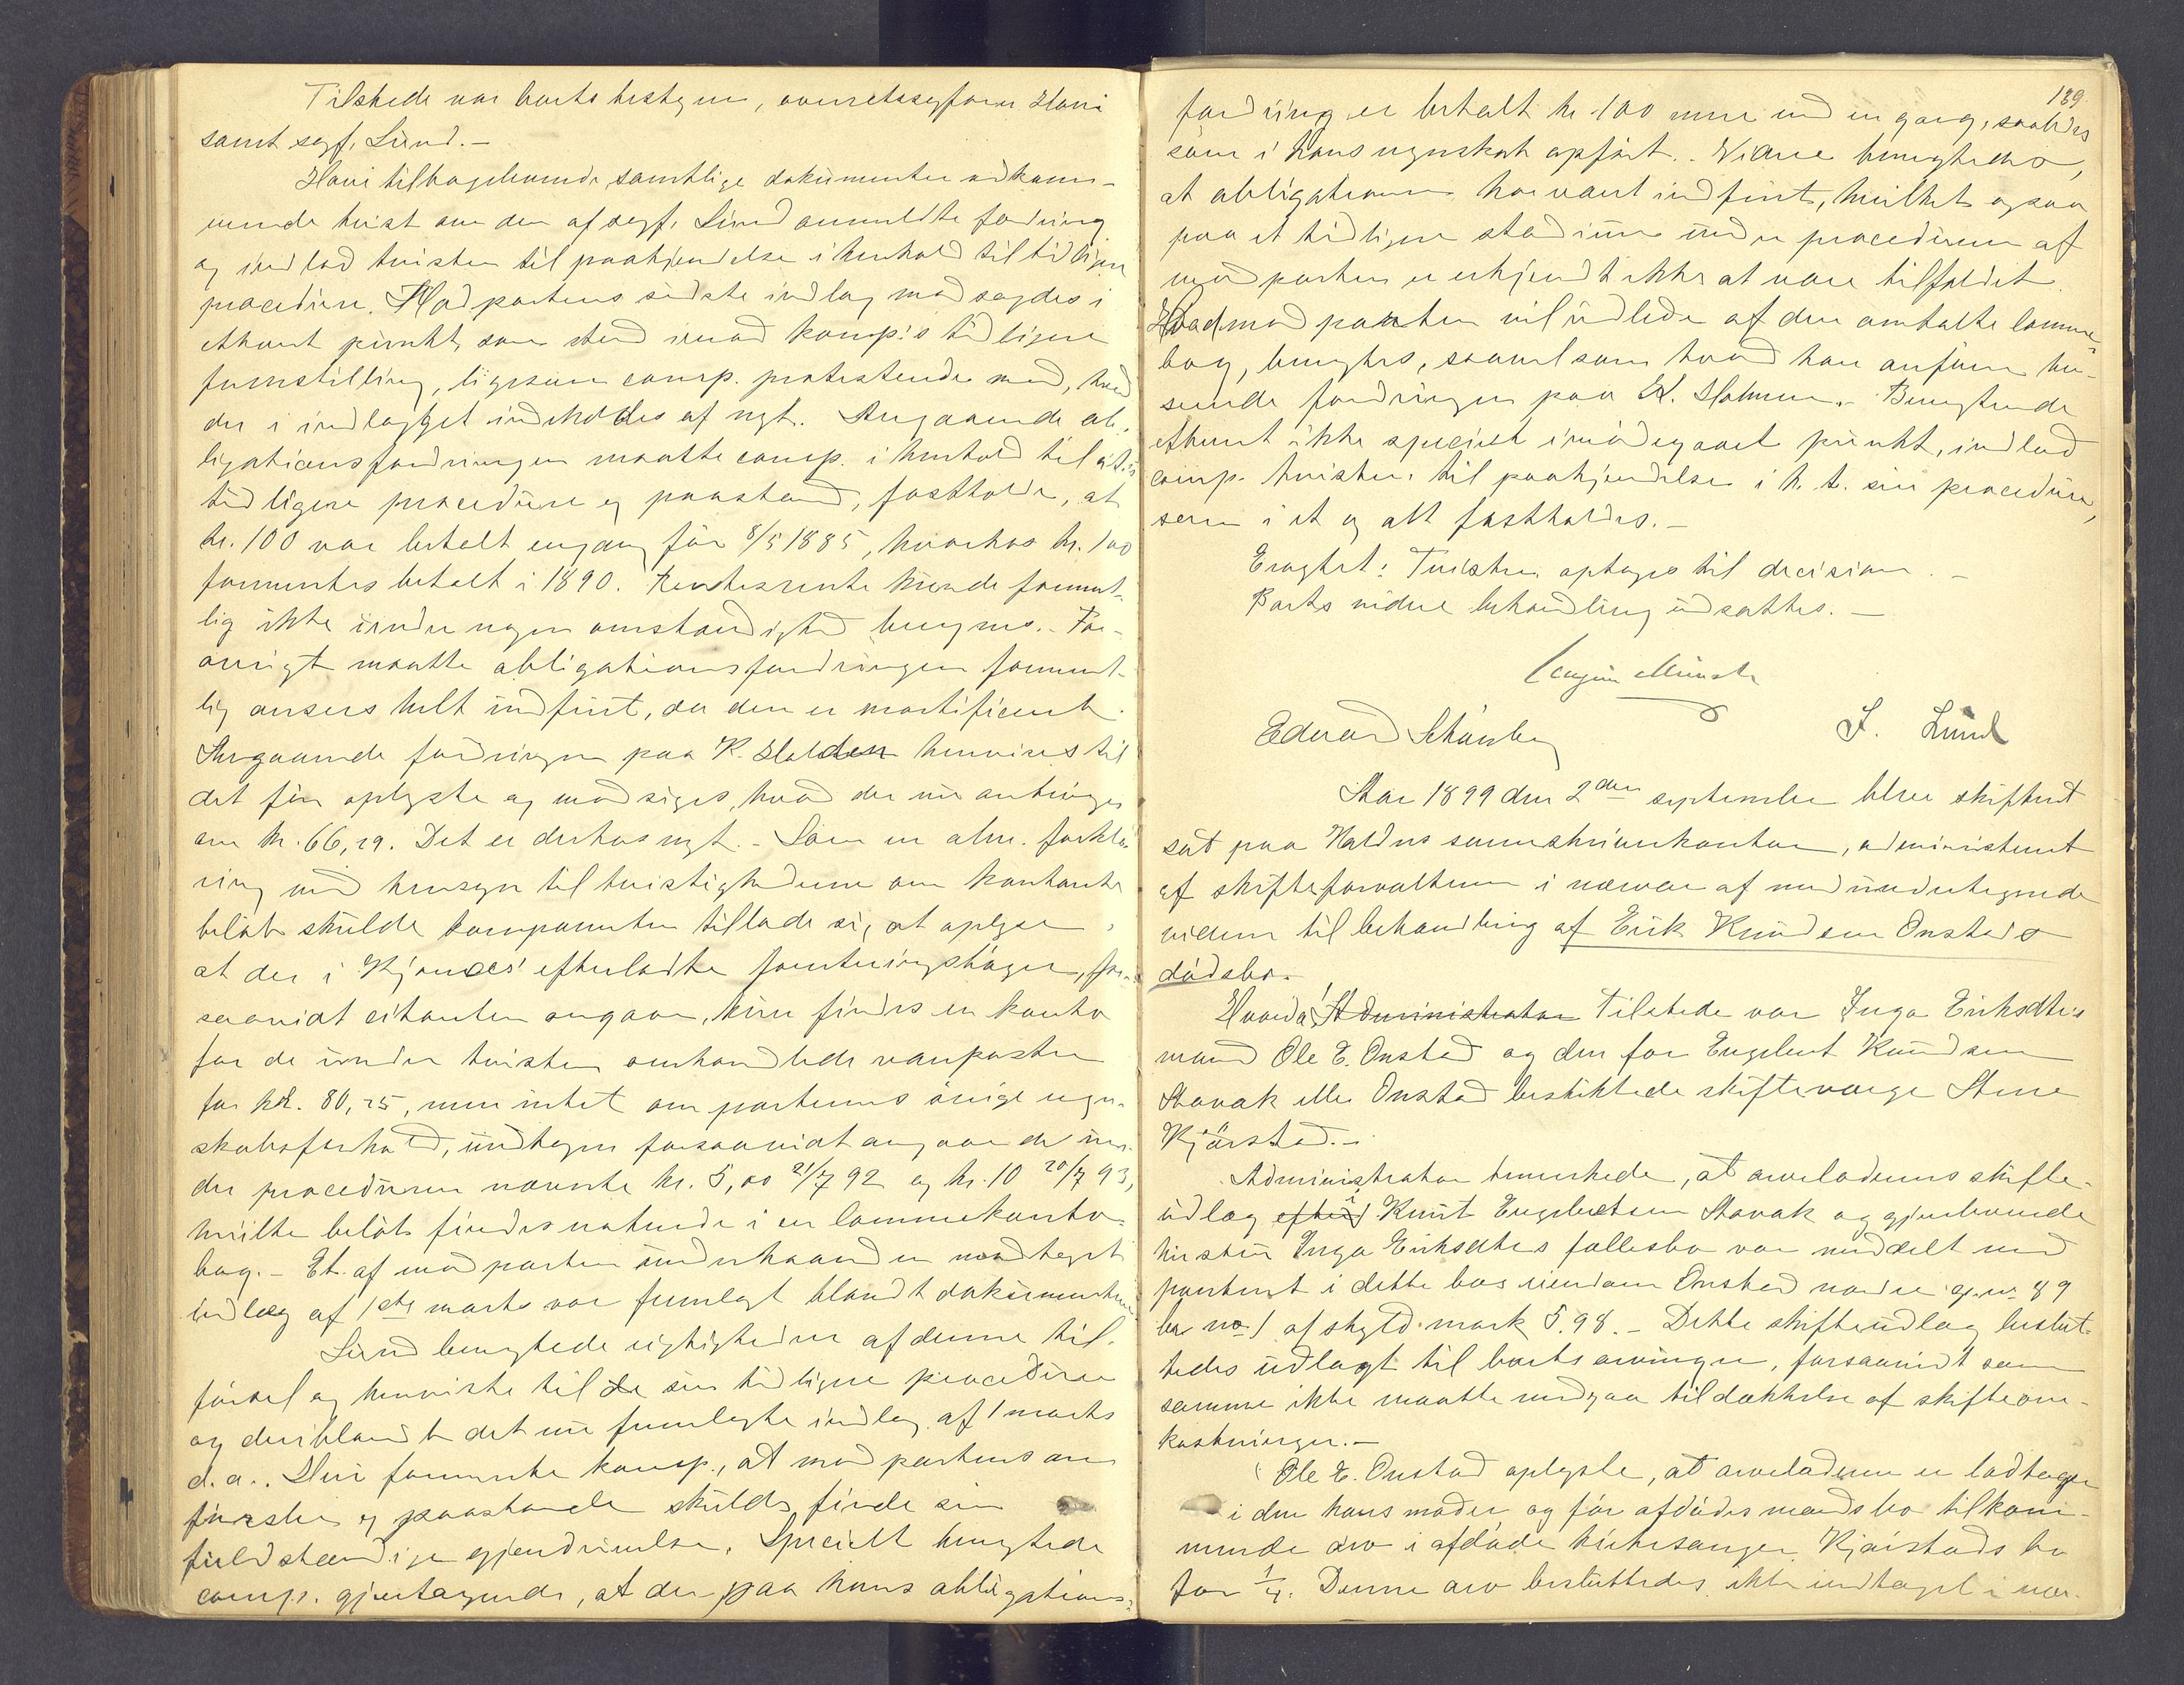 Tilstede var boets bestyrer, overretssagfører Hovi
samt sagf. Lund.-
Hovi tilbageleverede samtlige dokumenter vedkom-
mende tvist om den af sagf. Lund anmeldte fordring
og indlod tvisten til paakjendelse i henhold til tidligere
procedure. Modpartens sidste indlæg modsagdes i
ethvert punkt, som stred imod komp.'s tidligere
fremstilling, ligesom comp. protesterede mod, hvad
der i indlægget indeholdes af nyt. Angaaende ob-
ligationsfordringen maatte comp. i henhold til sit
tidligere procedure og paastand, fastholde, at
kr. 100 var betalt engang før 8/5 1885, hvorhos kr. 100
formentes betalt i 1890. Rentesrente kunde forment-
lig ikke under nogen omstændighed beregnes. For-
øvrigt maatte obligationsfordringen forment-
lig ansees helt indfriet, da den er mortificeret.
Angaaende fordringen paa K. Holden henvises til
det før oplyste og modsiges, hvad der nu anbringes
om kr. 66,29. Det er derhos nyt. - Som en alm. forkla-
ring med hensyn til tvistighederne om kontante
beløb skulde komparenten tillade sig at oplyse,
at der i Kjønaas' efterladte forretningsbøger, for-
saavidt citanten angaar, kun findes en konto
for de under tvisten omhandlede vareposter
for kr. 80,25, men intet om parternes øvrige regn-
skabsforhold, undtagen forsaavidt angaar de un-
der proceduren nævnte kr. 5,00 21/7 92 og kr. 10 20/7 93,
hvilke beløb findes noterede i en lommekonto-
bog. - Et af modparten underhaanden modtaget
indlæg af 1ste marts var fremlagt blandt dokumenterne
Lund benegtede rigtigheden af denne til-
førsel og henviste til de sin tidligere procedure
og deriblandt det nu fremlagte indlæg af 1 marts
d.a. Heri formente komp., at modpartens an-
førsler og paastande skulde finde sin
fuldstændige gjendrivelse. Specielt benegtede
comp. gjentagende, at der paa hans obligations-
189.
fordring er betalt kr. 100 mere end en gang, saaledes
som i hans regnskab opført.- Videre benegtedes,
at obligationen har været indfriet, hvilket ogsaa
paa et tidligere stadium under proceduren af
modparten er erkjendt ikke at være tilfældet.
Hvad modparten vil udlede af den omtalte lomme-
bog, benegtes, saavelsom hvad han anfører an-
gaaende fordringen paa K. Holmen. - Benegtende
ethvert ikke specielt imødegaaet punkt, indlod
comp. tvisten til paakjendelse i h. t. sin procedure,
som i et og alt fastholdes.-
Eragtet: Tvisten optages til decision.-
Boets videre behandling udsattes.-
Edvard Schønberg
J. Lund
Aar 1899 den 2den september blev skifteret
sat paa Valdres sorenskriverkontor, administreret
af skifteforvalteren i nærvær af medundertegnede
vidner til behandling af Erik Knudsen Onstads
dødsbo.-
Hvorda! Administrator Tilstede var Inga Eriksdtrs
mand Ole E. Onstad og den for Engebret Knudsen
Stavak eller Onstad beskikkede skifteværge Arne
Kjørstad.-
Administrator bemerkede, at arveladerens skifte-
udlæg efter i Knut Engebretsen Stavak og gjenlevende
hustru Inga Eriksdtrs fællesbo var meddelt med
panteret i dette boes eiendom Onstad nordre g.no. 89
br. no. 1 af skyld mark 5.98.- Dette skifteudlæg beslut-
tedes udlagt til boets arvinger, forsaavidt som
samme ikke maatte medgaa til dækkelse af skifteom-
kostninger.-
Ole E. Onstad oplyste, at arveladeren er lodtager
i den hans moder og før afdødes mands bo tilkom-
mende arv i afdøde kirkesanger Kjørstads bo
for 1/4. Denne arv besluttedes ikke indtaget i nær-